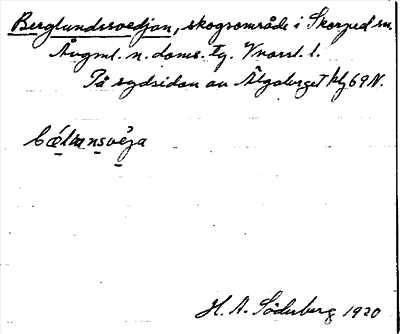 Berglundssvedjan, skogsområde i Skorped sn
Ångml. n. doms. tg. Vnorrl. l.
På sydsidan av Älgaberget blg 69 N.
H. A. Söderberg 1920